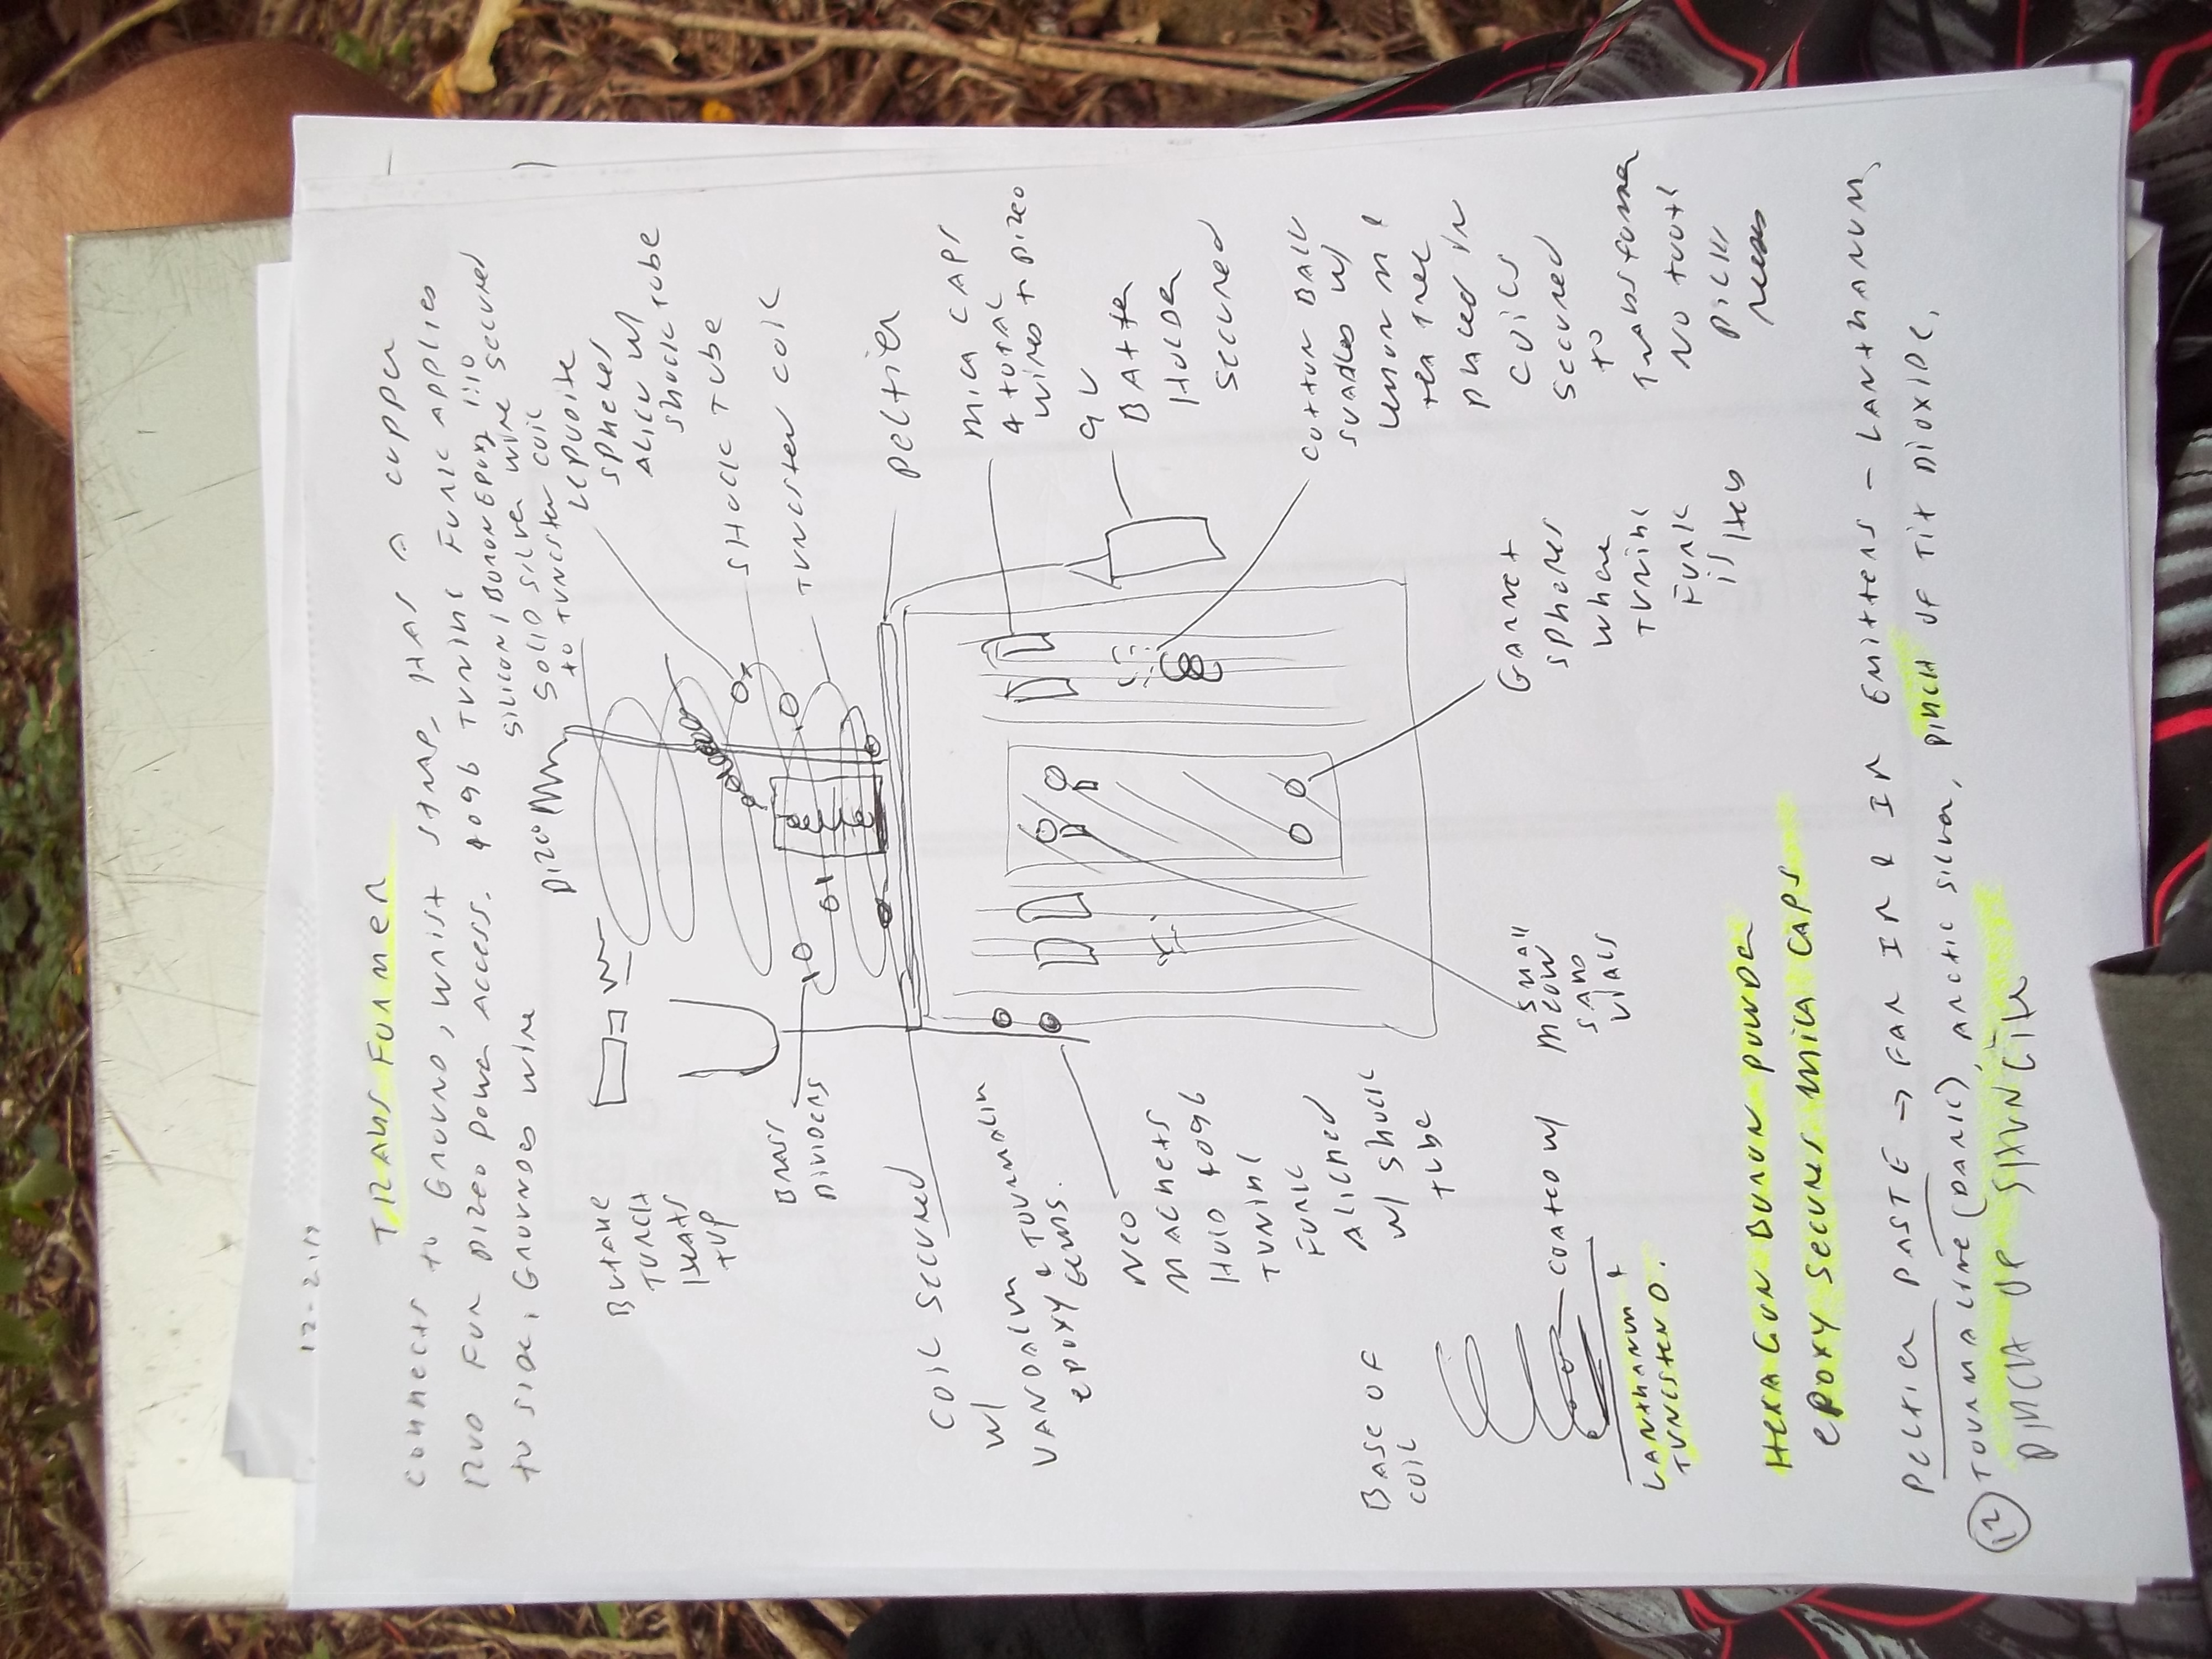 12-21n
TRANSFORMER
CONNECTS to GROUND, WRIST STRAP, HAS A COPPER
ROD FOR PIZEO POWER ACCESS. 4096 TUNING FORK APPLIED
to SIDE, GROUNDED WIRE
SILICON/BORON EPOXY 1:10
SOLID SILVER WIRE SECURED
to TUNGSTEN COIL
PIZEO
LEPDOITE
SPHERES
ALIGN W/
SHUCK TUBE
SHUCK TUBE
TUNGSTEN COIL
PELTIER
MICA CAPS
4 TOTAL
WIRED + PIZEO
9V
BATTER
HOLDER
SECURED
COTTON BALL
SOAKED W/
LEMON M &
TEA TREE
PLACED IN
COILS
SECURED
TO
TRANSFORMER
NO TOOTH
PICKS
BUTANE
TORCH
HEATS
TOP
BRASS
DIVIDERS
COIL SECURED
W/
VANDADIUM
& TOURMALIN
EPOXY GEMS.
NEO
MAGNETS
HOLD 4096
TUNING
FORK
ALIGNED
W/ SHUCK
TUBE
GARNET
SPHERES
WHERE
TUNING
FORK
IS HELD
SMALL
MEOW
SAND
VIALS
BASE OF
COIL
COATED W/
LANTHANUM &
TUNGSTEN D.
HEXAGON BORON POWDER
EPOXY SECURES MICA CAPS
PELTIER PASTE → FAR IR & IR EMITTERS - LANTHANUM,
TOURMALINE (DARK) ARCTIC SILVER, PINCH OF TIT DIOXIDE,
PINCH OF SHUNGITE
12